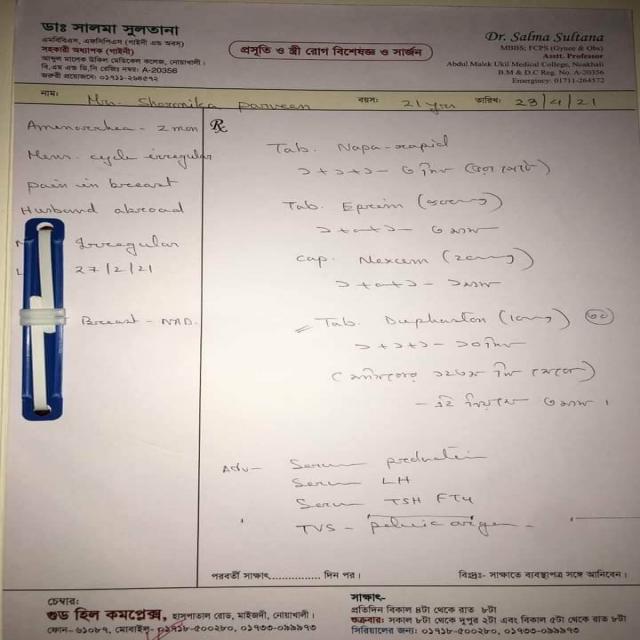 ডাঃ সালমা সুলতানা
এমবিবিএস, এফসিপিএস (গাইনী এন্ড অবস)
সহকারী অধ্যাপক (গাইনী)
আব্দুল মালেক উকিল মেডিকেল কলেজ, নোয়াখালী।
বি.এম এন্ড ডি.সি রেজিঃ নম্বর: A-20356
জরুরী প্রয়োজনে: ০১৭১১-২৬৪৫৭২
প্রসূতি ও স্ত্রী রোগ বিশেষজ্ঞ ও সার্জন
Dr. Salma Sultana
MBBS; FCPS (Gynee & Obs)
Asstt. Professor
Abdul Malek Ukil Medical College, Noakhali
B.M & D.C Reg. No. A-20356
Emergency: 01711-264572
নাম: Mrs. Sharmika parveen বয়স: 21 yrs তারিখ: 23/4/21
Amenorrhea - 2 mon
Mens. cycle irregular
pain in breast
Husband abroad
Irregular
27/2/21
Breast - NAD.
Rx
Tab. Napa-rapid
১+১+১ -
Tab.
Cap. Nexcem (20mg)
Tab. Duphaston (10mg)
১+১+১ - ১০ দিন
Adv - Serum prolactin
Serum LH
Serum TSH FT4
TVS - pelvic organ
পরবর্তী সাক্ষাৎ............... দিন পর।
বিঃদ্রঃ- সাক্ষাতে ব্যবস্থাপত্র সঙ্গে আনিবেন।
চেম্বার:
গুড হিল কমপ্লেক্স, হাসপাতাল রোড, মাইজদী, নোয়াখালী।
ফোন- ৬১০৮৭, মোবাইল- ০১৭১৮-৫০০২৮০, ০১৭৩৩-০৯৯৯৭৩
সাক্ষাৎ-
প্রতিদিন বিকাল ৪টা থেকে রাত ৮টা
শুক্রবার: সকাল ৮টা থেকে দুপুর ২টা এবং বিকাল ৫টা থেকে রাত ৮টা
সিরিয়ালের জন্য: ০১৭১৮-৫০০২৮০, ০১৭৩৩-০৯৯৯৭৩